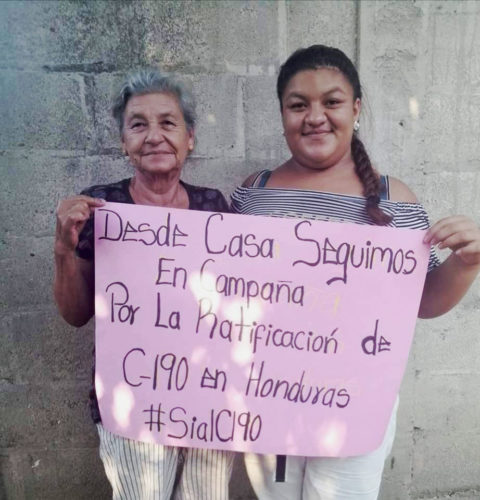 Desde Casa Seguimos
En Campaña
Por La Ratificación de
C-190 en Honduras
#SialC190